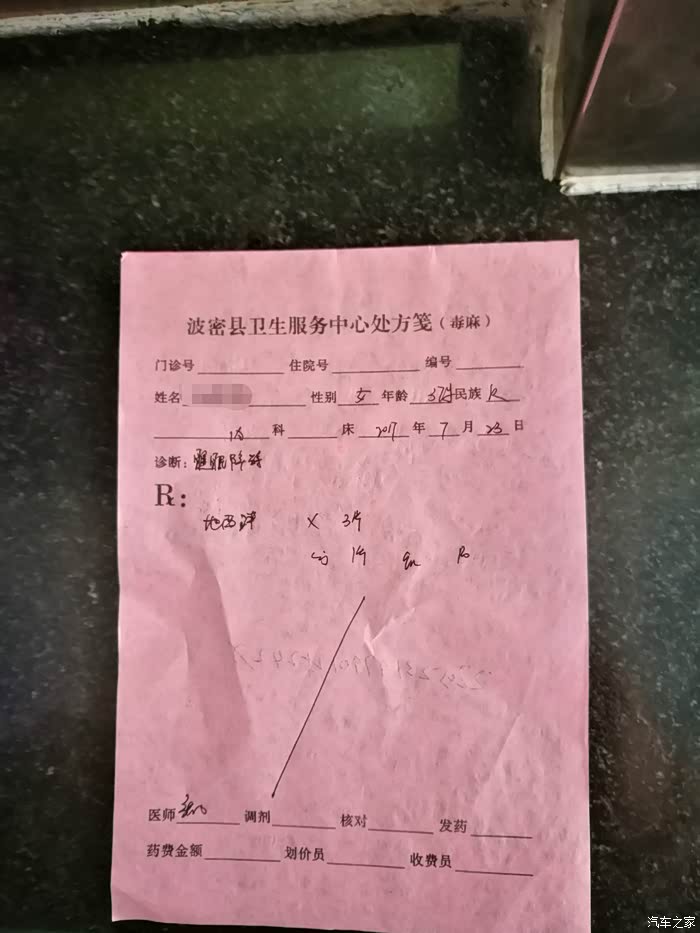 波密县卫生服务中心处方笺(毒麻)
门诊号 住院号 编号
姓名 性别 女 年龄 民族
内 科 床 2017 年 7 月 23 日
诊断: 睡眠障碍
R:
地西泮 X 3片
医师 调剂 核对 发药
药费金额 划价员 收费员
汽车之家